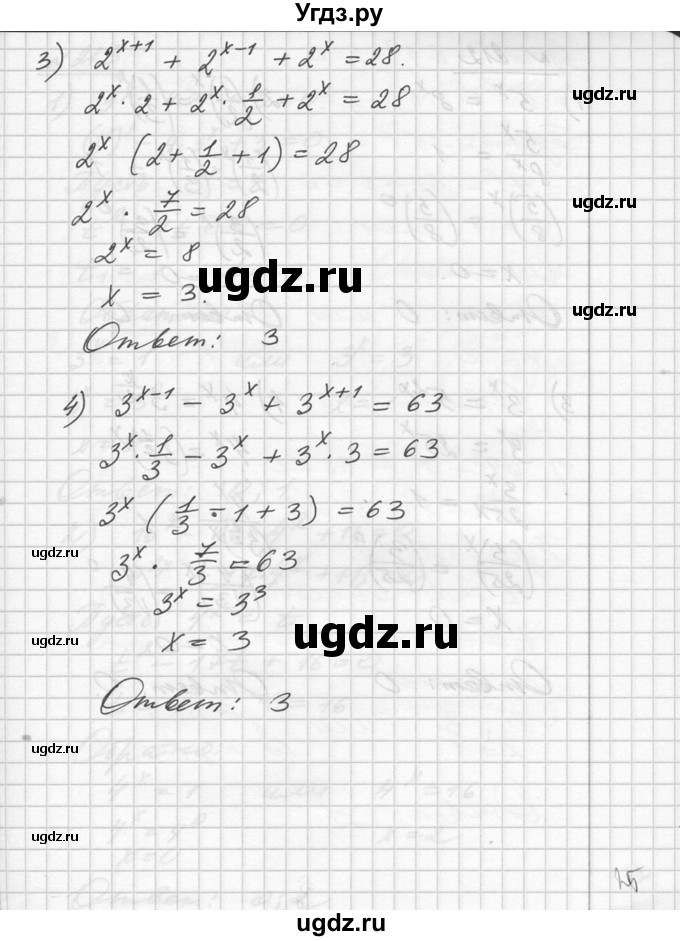 Угдз.ру
3) 2^{x+1} + 2^{x-1} + 2^x = 28.
2^x · 2 + 2^x · 1/2 + 2^x = 28
ugdz.ru
2^x (2 + 1/2 + 1) = 28
2^x · 7/2 = 28
ugdz.ru
2^x = 8
ugdz.ru
x = 3.
ugdz.ru
Ответ: 3
4) 3^{x-1} - 3^x + 3^{x+1} = 63
3^x · 1/3 - 3^x + 3^x · 3 = 63
3^x (1/3 - 1 + 3) = 63
ugdz.ru
3^x · 7/3 = 63
3^x = 3^3
ugdz.ru
x = 3
ugdz.ru
Ответ: 3
ugdz.ru
ugdz.ru
ugdz.ru